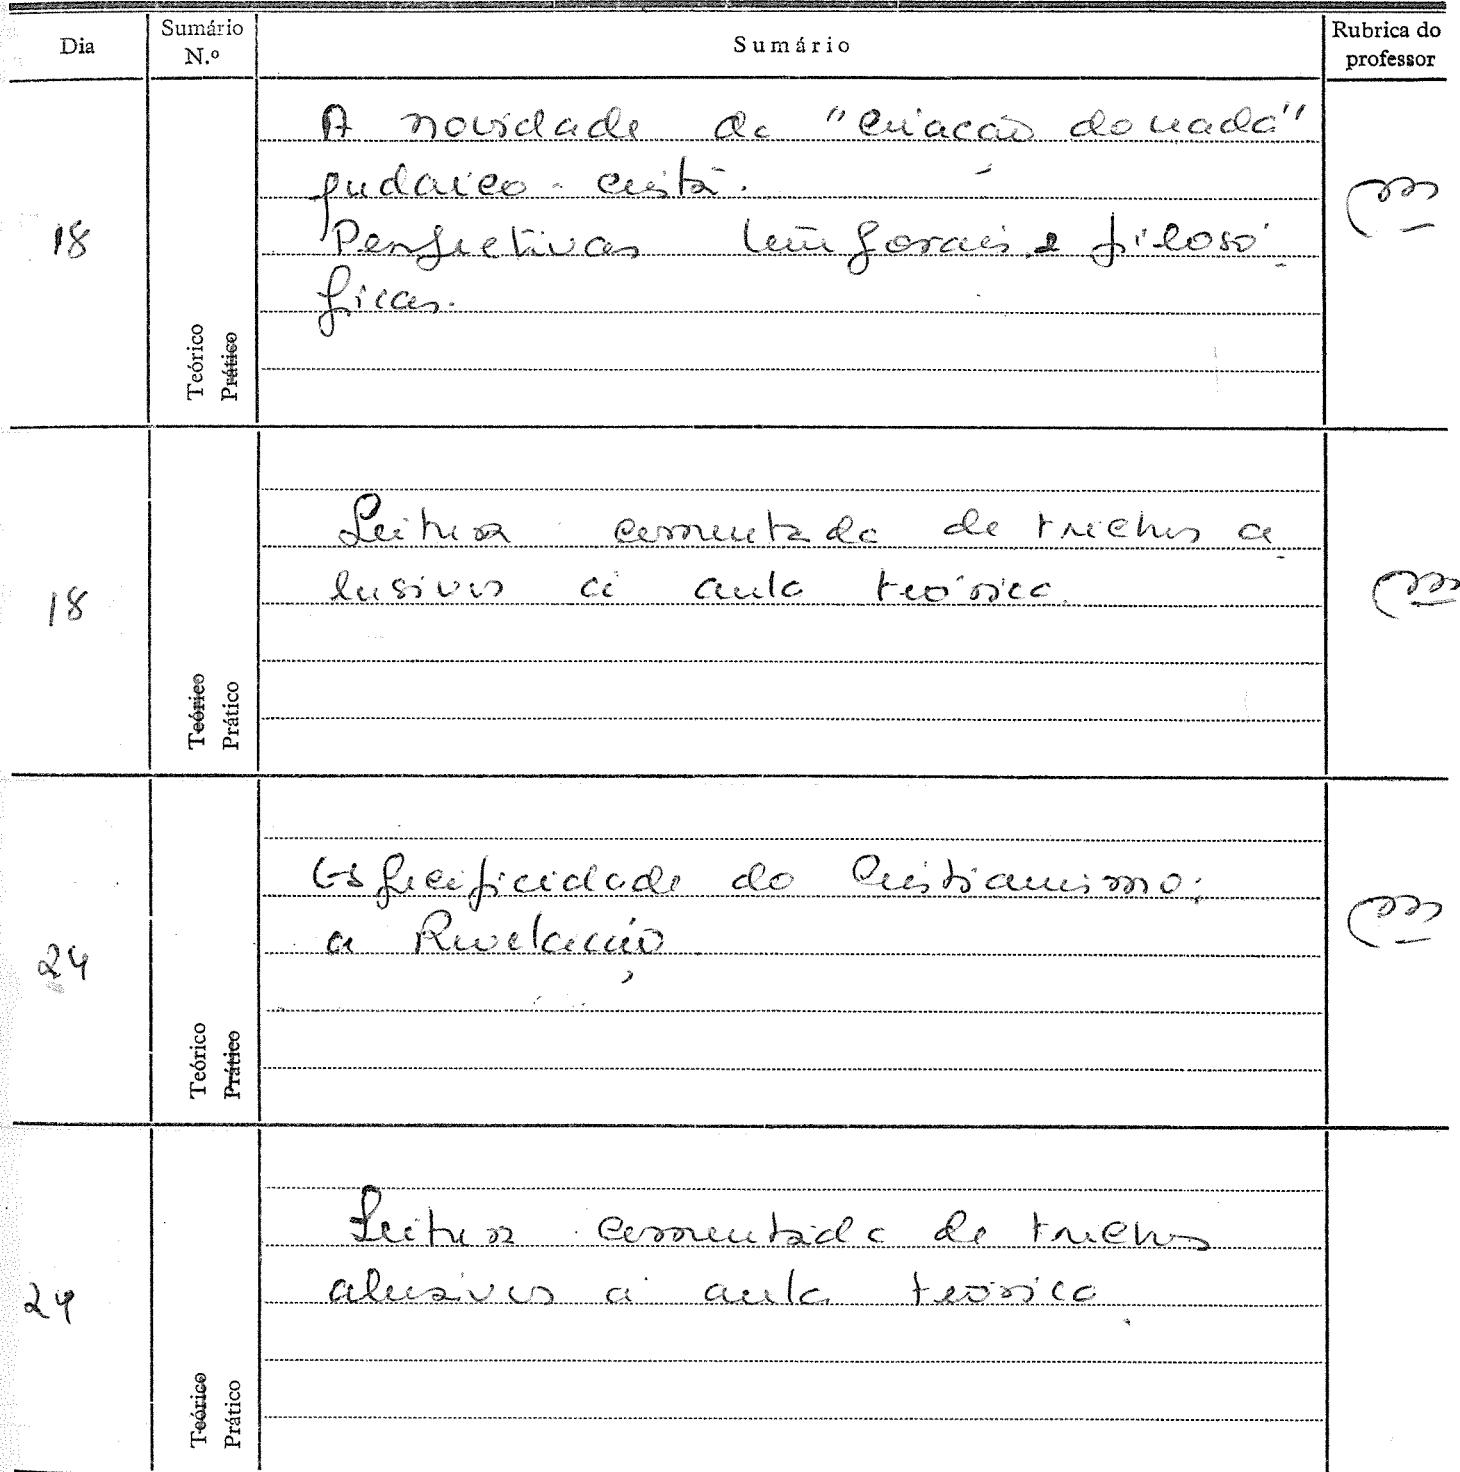 Dia
Sumário N.º
Sumário
Rubrica do professor
18
Teórico
Prático
A novidade da "criação do nada"
judaico-cristã.
Perspectivas temporais e filosó
ficas.
18
Teórico
Prático
Leitura comentada de trechos a
lusivos à aula teórica.
24
Teórico
Prático
Especificidade do Cristianismo:
a Revelação
24
Teórico
Prático
Leitura comentada de trechos
alusivos à aula teórica